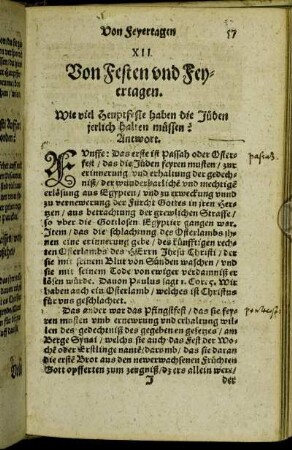 Von Feyertagen 57
XII.
Von Festen vnd Fey-
ertagen.
Wie viel Heuptfeste haben die Jüden
jerlich halten müssen?
Antwort.
FVnffe: Das erste ist Passah oder Osters
fest / das die Jüden feyren musten / zur
erinnerung vnd erhaltung der gedech-
niß / der wunderbarliche vnd mechtigē
erlösung aus Egypten / vnd zu erweckung vnnd
zu vernewerung der Furcht Gottes in jren Her-
tzen / aus betrachtung der grewlichen Straffe /
so vber die Gottlosen Egyptier gangen war.
Item / das die schlachtung des Osterlambs
jnen eine erinnerung gebe / des künfftigen rech-
ten Osterlambs des HErrn Jhesu Christi / der
sie mit seinem Blut von Sünden waschen / vnd
sie mit seinem Tode von ewiger verdamniß er
lösen würde. Dauon Paulus sagt 1. Cor. 5. Wir
haben auch ein Osterlamb / welches ist Christus
für vns geschlachtet.
Das ander war das Pfingstfest / das sie fey
ren musten vmb ernewrung vnd erhaltung wil-
len des gedechtniß des gegebenen gesetzes / am
Berge Synai / welchs sie auch das Fest der Wo-
chē oder Erstlinge nante: darumb / das sie daran
die ersten Brot aus den newerwachsenen Früchten
Gott opfferten zum zeugniß / dz ers allein were /
J der